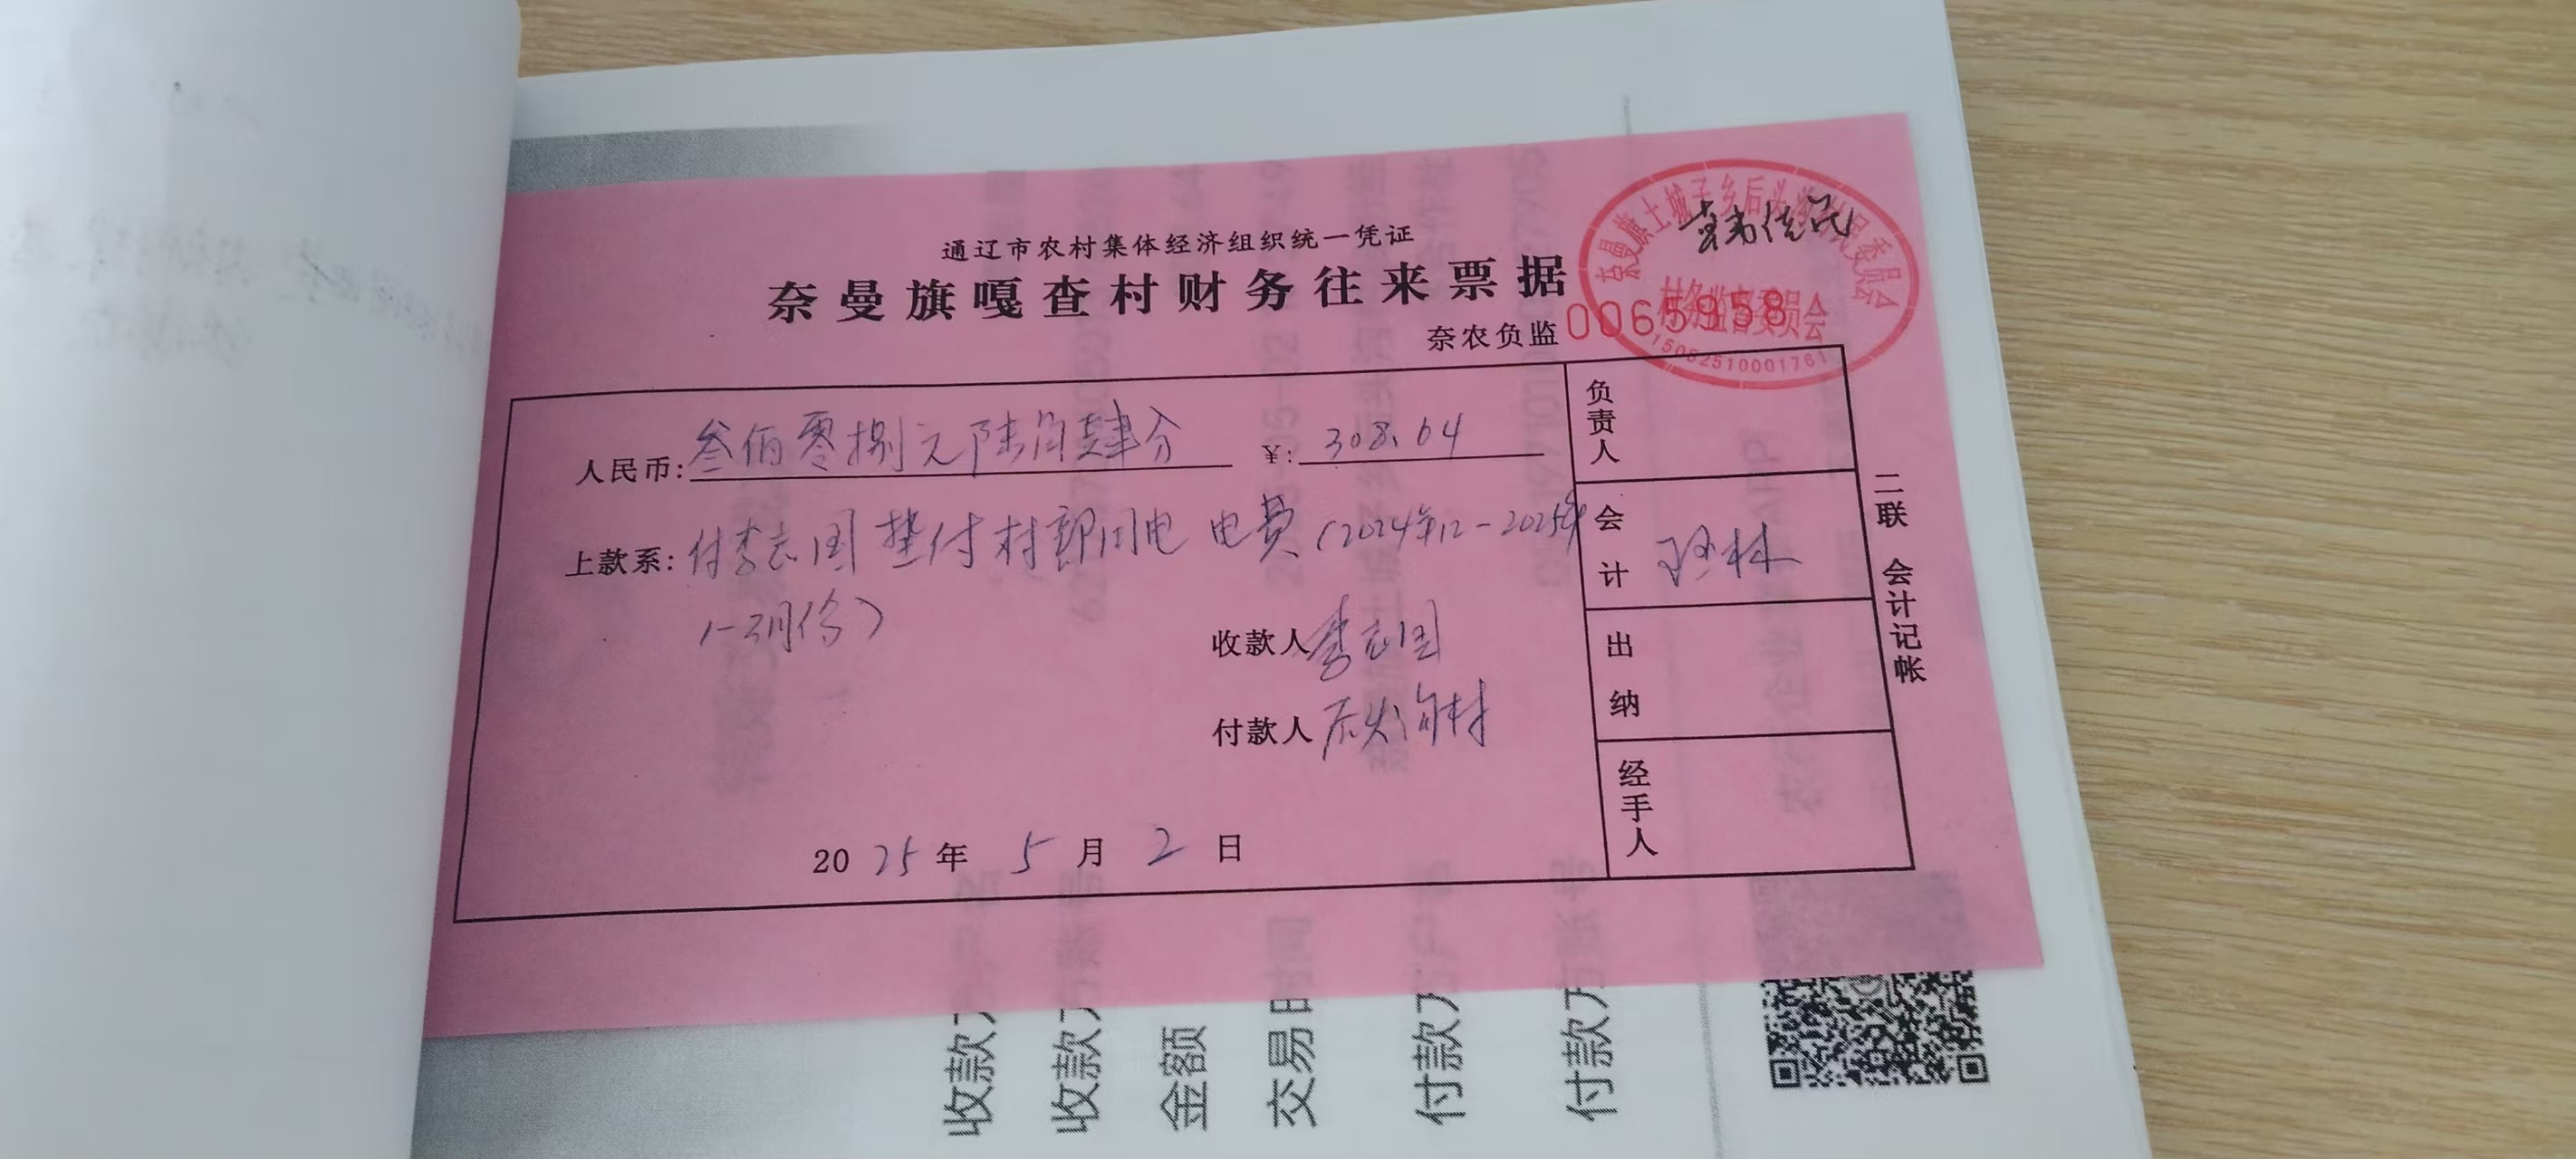 通辽市农村集体经济组织统一凭证
奈曼旗嘎查村财务往来票据
奈农负监 0065958
村务监督委员会
1505251000176
人民币: 叁佰零捌元陆角肆分 ¥: 308.64
上款系: 付李志国垫付村部用电 电费（2024年12-2025年
1-3月份）
收款人 李志国
付款人 后头沟村
2025年 5月 2日
负责人
会计
出纳
经手人
二联 会计记帐
收款方
收款方
金额
交易时
付款方
付款方